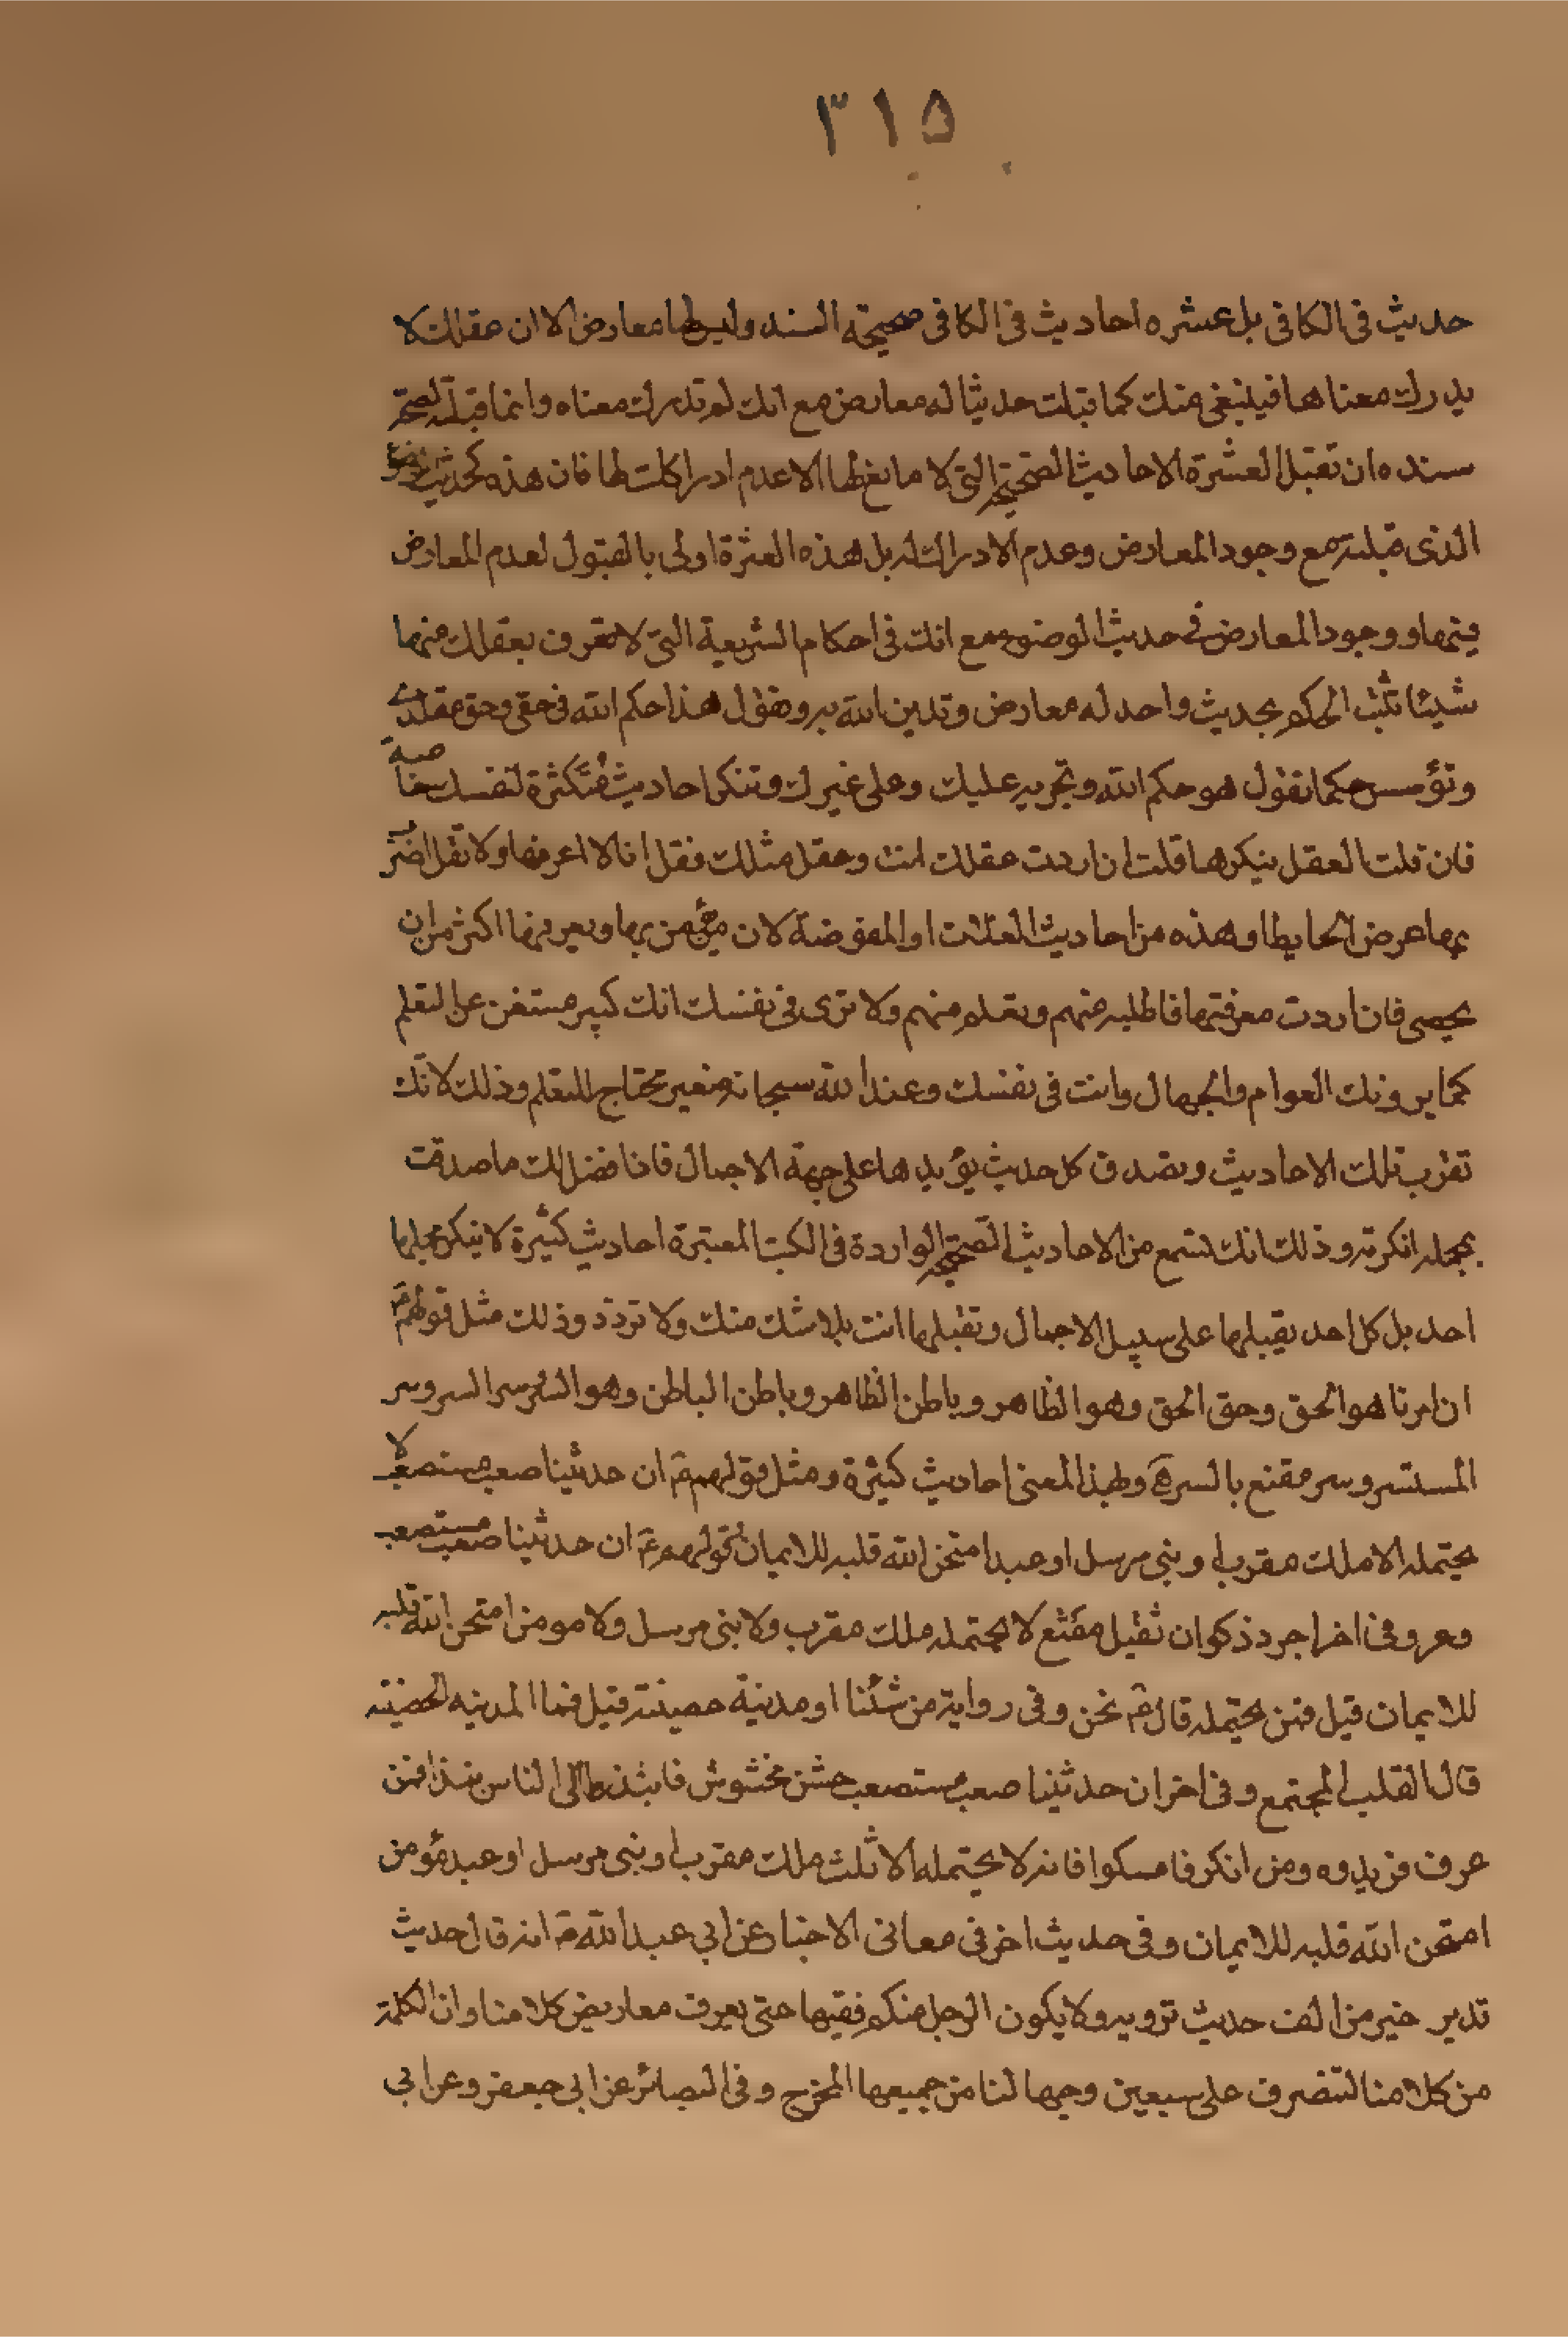 ٣١٥
حديث فى الكافى بل عشره احاديث فى الكافى صحيحة السند وليس لها معارض الا ان عقلك لا
يدرك معناها فينبغى منك كما قبلت حديثا له معارض مع انك لم تدرك معناه وانما قبلته لصحة
سنده ان تقبل العشرة الاحاديث الصحيحة التى لا مانع لها الا عدم ادراكك لها فان هذه كحديث الوضوء
الذى قبلته مع وجود المعارض وعدم الادراك له بل هذه العشرة اولى بالقبول لعدم المعارض
فيها ووجود المعارض فى حديث الوضوء مع انك فى احكام الشريعة التى لا تعرف بعقلك منها
شيئا تثبت الحكم بحديث واحد له معارض وتدين الله به وتقول هذا حكم الله فى حقى وحق مقلدى
وتؤسس حكما تقول هو حكم الله وتجريه عليك وعلى غيرك وتنكر احاديث متكثرة لنفسك خاصة
فان قلت العقل ينكرها قلت ان اردت عقلك انت وعقل مثلك فقل انا لا اعرفها ولا تقل اضرب
بها عرض الحايط او هذه من احاديث الغلات او المفوضة لان من يؤمن بها ويعرفها اكثر من ان
يحصى فان اردت معرفتها فاطلبه منهم وتعلم منهم ولا ترى فى نفسك انك كبير مستغن عن التعلم
كما يرونك العوام والجهال وانت فى نفسك وعند الله سبحانه صغير تحتاج للتعلم وذلك لانك
تقرب تلك الاحاديث وتصدق كل حديث يؤيدها على جهة الاجمال فاذا فصل لك ما صدقت
بجمله انكرته وذلك انك تسمع من الاحاديث الصحيحة الواردة فى الكتب المعتبرة احاديث كثيرة لا ينكر مجملها
احد بل كل احد يقبلها على سبيل الاجمال وتقبلها انت بلا شك منك ولا تردد وذلك مثل قولهم ع
ان امرنا هو الحق وحق الحق وهو الظاهر وباطن الظاهر وباطن الباطن وهو السر وسر السر وسر
المستسر وسر مقنع بالسر وبهذا المعنى احاديث كثيرة ومثل قولهم ع ان حديثنا صعب مستصعب لا
يحتمله الا ملك مقرب او نبى مرسل او عبد امتحن الله قلبه للايمان كقولهم ع ان حديثنا صعب مستصعب
وعر وفى اخر اجرد ذكوان ثقيل مقنع لا يحتمله ملك مقرب ولا نبى مرسل ولا مومن امتحن الله قلبه
للايمان قيل فمن يحتمله قال ع نحن وفى رواية من شئنا او مدينة حصينة قيل فما المدينه الحصينه
قال القلب المجتمع وفى اخر ان حديثنا صعب مستصعب خشن مخشوش فانبذوا الى الناس نبذا فمن
عرف فزيدوه ومن انكر فامسكوا فانه لا يحتمله الا ثلث ملك مقرب او نبى مرسل او عبد مؤمن
امتحن الله قلبه للايمان وفى حديث اخر فى معانى الاخبار عن ابي عبد الله ع انه قال حديث
تدريه خير من الف حديث ترويه ولا يكون الرجل منكم فقيها حتى يعرف معاريض كلامنا وان الكلمة
من كلامنا لتنصرف على سبعين وجها لنا من جميعها المخرج وفى البصائر عن ابى جعفر وعن ابي